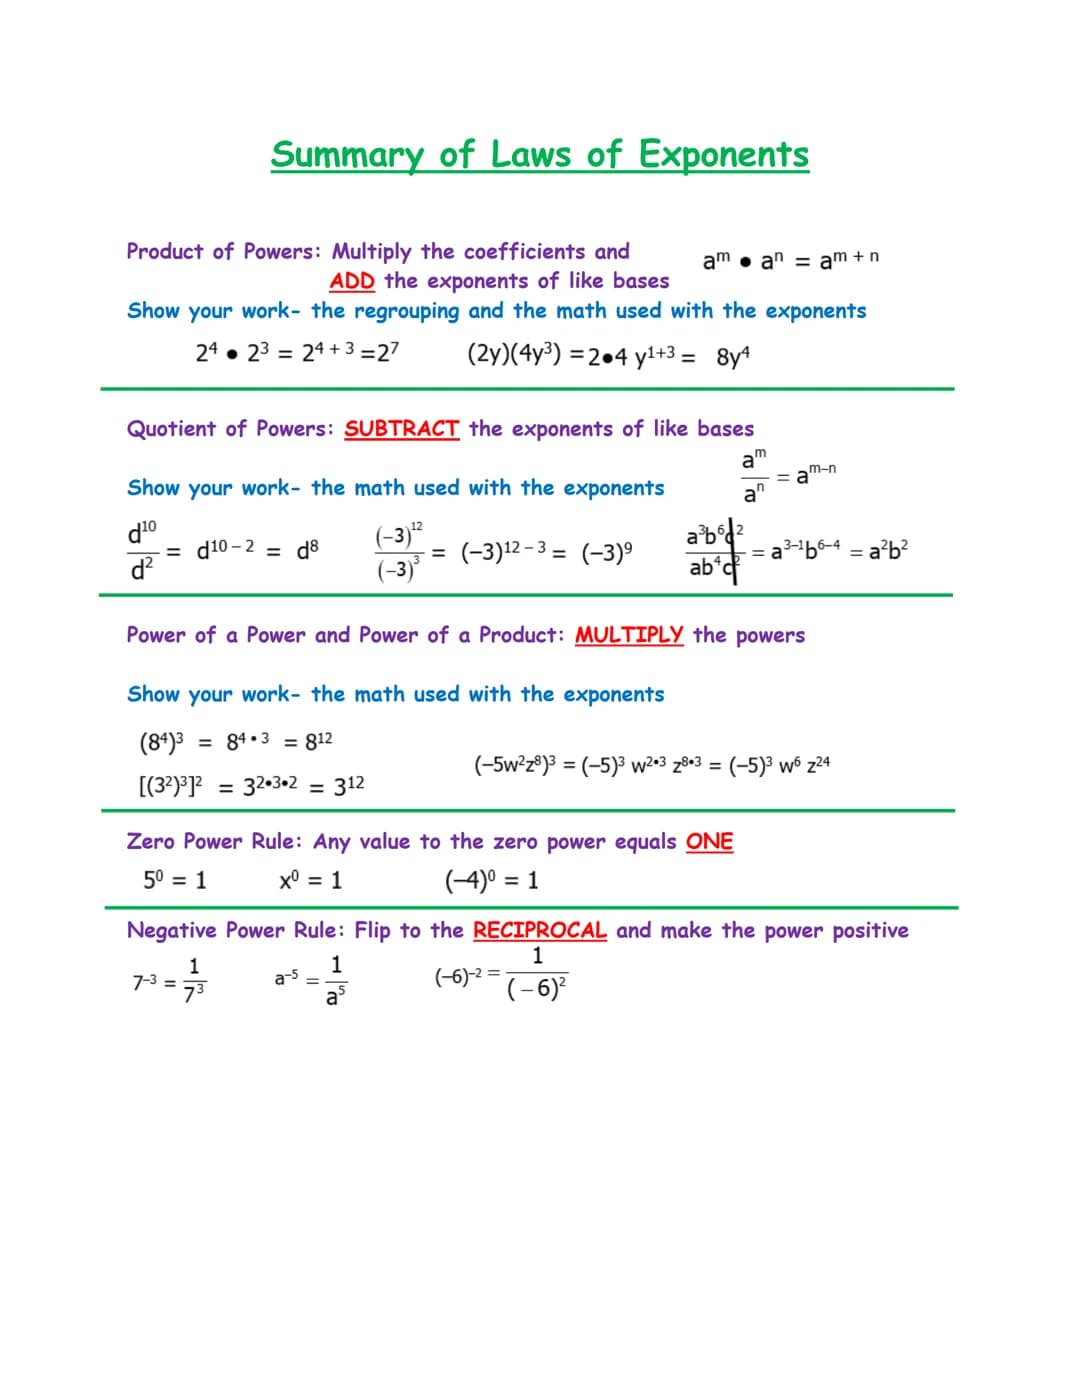 Summary of Laws of Exponents
Product of Powers: Multiply the coefficients and
ADD the exponents of like bases
aᵐ • aⁿ = aᵐ ⁺ ⁿ
Show your work- the regrouping and the math used with the exponents
2⁴ • 2³ = 2⁴ ⁺ ³ =2⁷ (2y)(4y³) =2•4 y¹⁺³ = 8y⁴
Quotient of Powers: SUBTRACT the exponents of like bases
aᵐ/aⁿ = aᵐ⁻ⁿ
Show your work- the math used with the exponents
d¹⁰/d² = d¹⁰ ⁻ ² = d⁸ (−3)¹²/(−3)³ = (−3)¹² ⁻ ³ = (−3)⁹ a³b⁶c²/ab⁴c² = a³⁻¹b⁶⁻⁴ = a²b²
Power of a Power and Power of a Product: MULTIPLY the powers
Show your work- the math used with the exponents
(8⁴)³ = 8^(4 • 3) = 8¹²
(−5w²z⁸)³ = (−5)³ w^(2•3) z^(8•3) = (−5)³ w⁶ z²⁴
[(3²)³]² = 3^(2•3•2) = 3¹²
Zero Power Rule: Any value to the zero power equals ONE
5⁰ = 1 x⁰ = 1 (−4)⁰ = 1
Negative Power Rule: Flip to the RECIPROCAL and make the power positive
7⁻³ = 1/7³ a⁻⁵ = 1/a⁵ (−6)⁻² = 1/(−6)²